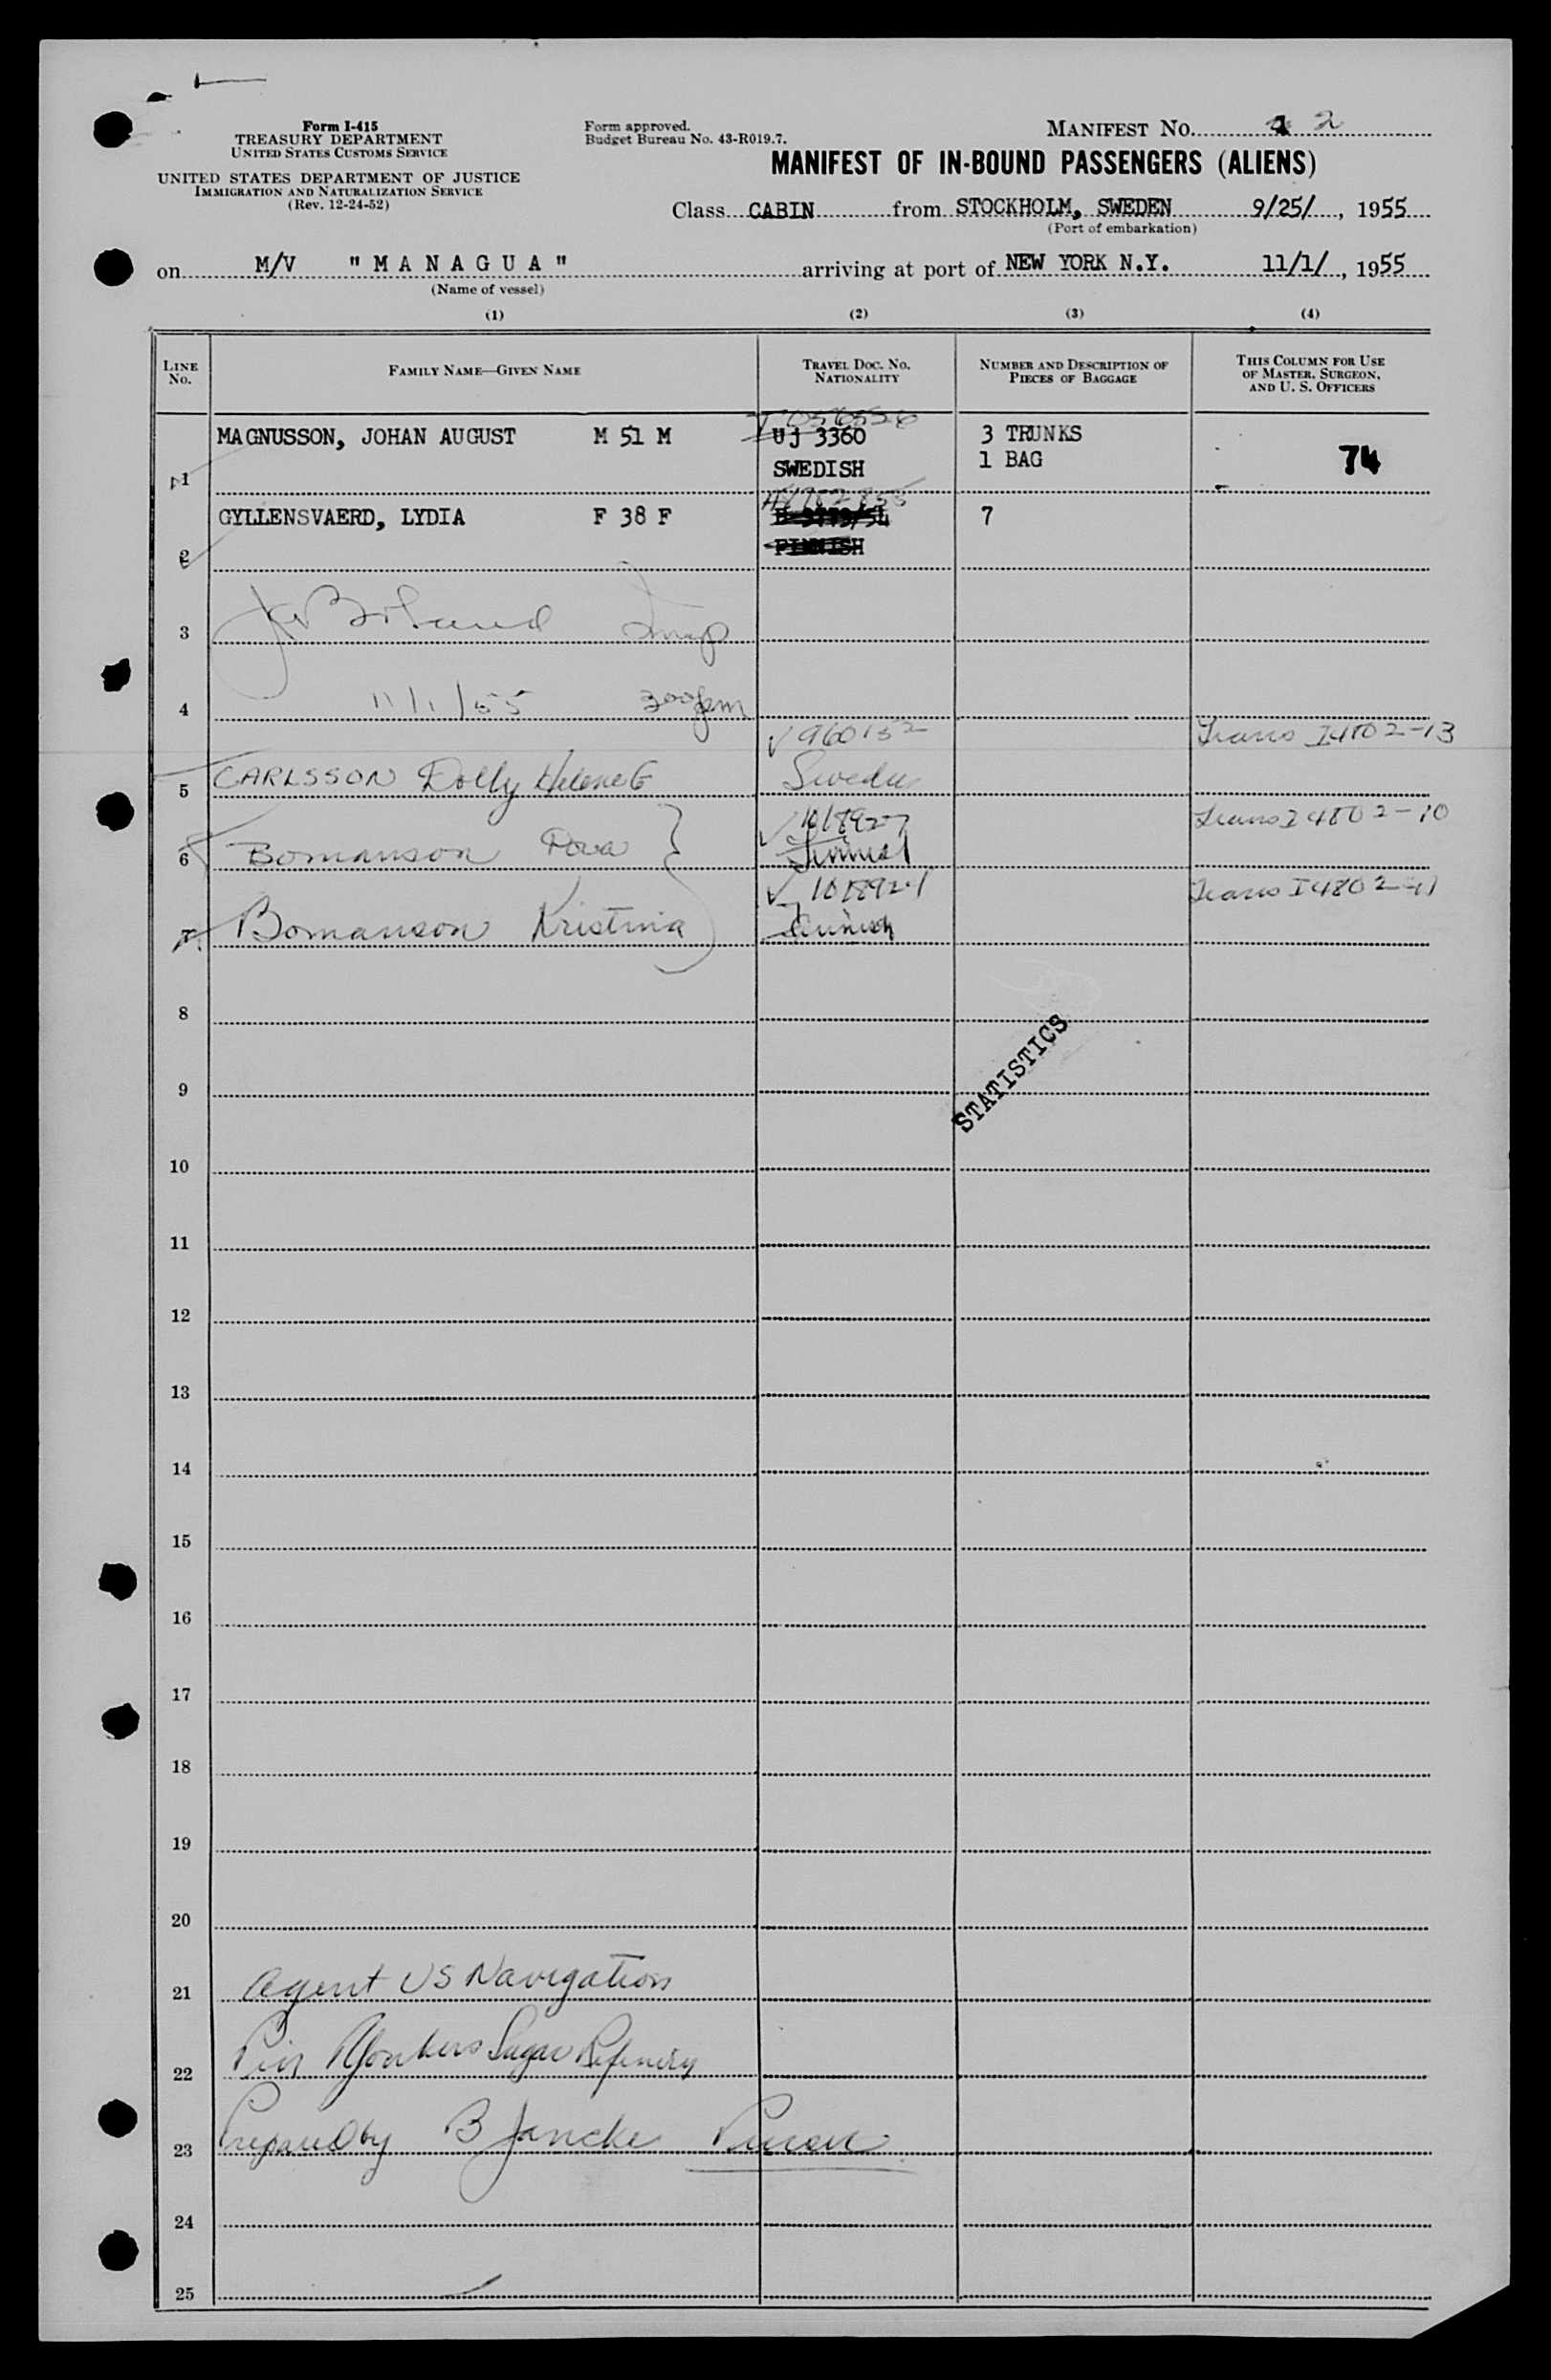 Form I-415
TREASURY DEPARTMENT
UNITED STATES CUSTOMS SERVICE
UNITED STATES DEPARTMENT OF JUSTICE
IMMIGRATION AND NATURALIZATION SERVICE
(Rev. 12-24-52)
Form approved.
Budget Bureau No. 43-R019.7.
MANIFEST NO. 2
MANIFEST OF IN-BOUND PASSENGERS (ALIENS)
Class CABIN from STOCKHOLM, SWEDEN 9/25/, 1955
(Port of embarkation)
on M/V "MANAGUA" arriving at port of NEW YORK N.Y. 11/1/, 1955
(Name of vessel)
(1) (2) (3) (4)
LINE NO.
FAMILY NAME—GIVEN NAME
TRAVEL DOC. NO.
NATIONALITY
NUMBER AND DESCRIPTION OF
PIECES OF BAGGAGE
THIS COLUMN FOR USE
OF MASTER, SURGEON,
AND U. S. OFFICERS
MAGNUSSON, JOHAN AUGUST M 51 M UJ 3360 3 TRUNKS
1 SWEDISH 1 BAG 74
GYLLENSVAERD, LYDIA F 38 F 7
2 FINNISH
3
4 11/1/55 300pm
960152 Trans I4802-13
5 CARLSSON Dolly Helene G Swedu
101892 Trans I4802-10
6 Bomanson Finnish
101892 Trans I4802-11
7 Bomanson Kristina Finnish
8
STATISTICS
9
10
11
12
13
14
15
16
17
18
19
20
21 Agent US Navigation
22 Pier Yonkers Sugar Refinery
23 Prepared by B Jancke Purser
24
25